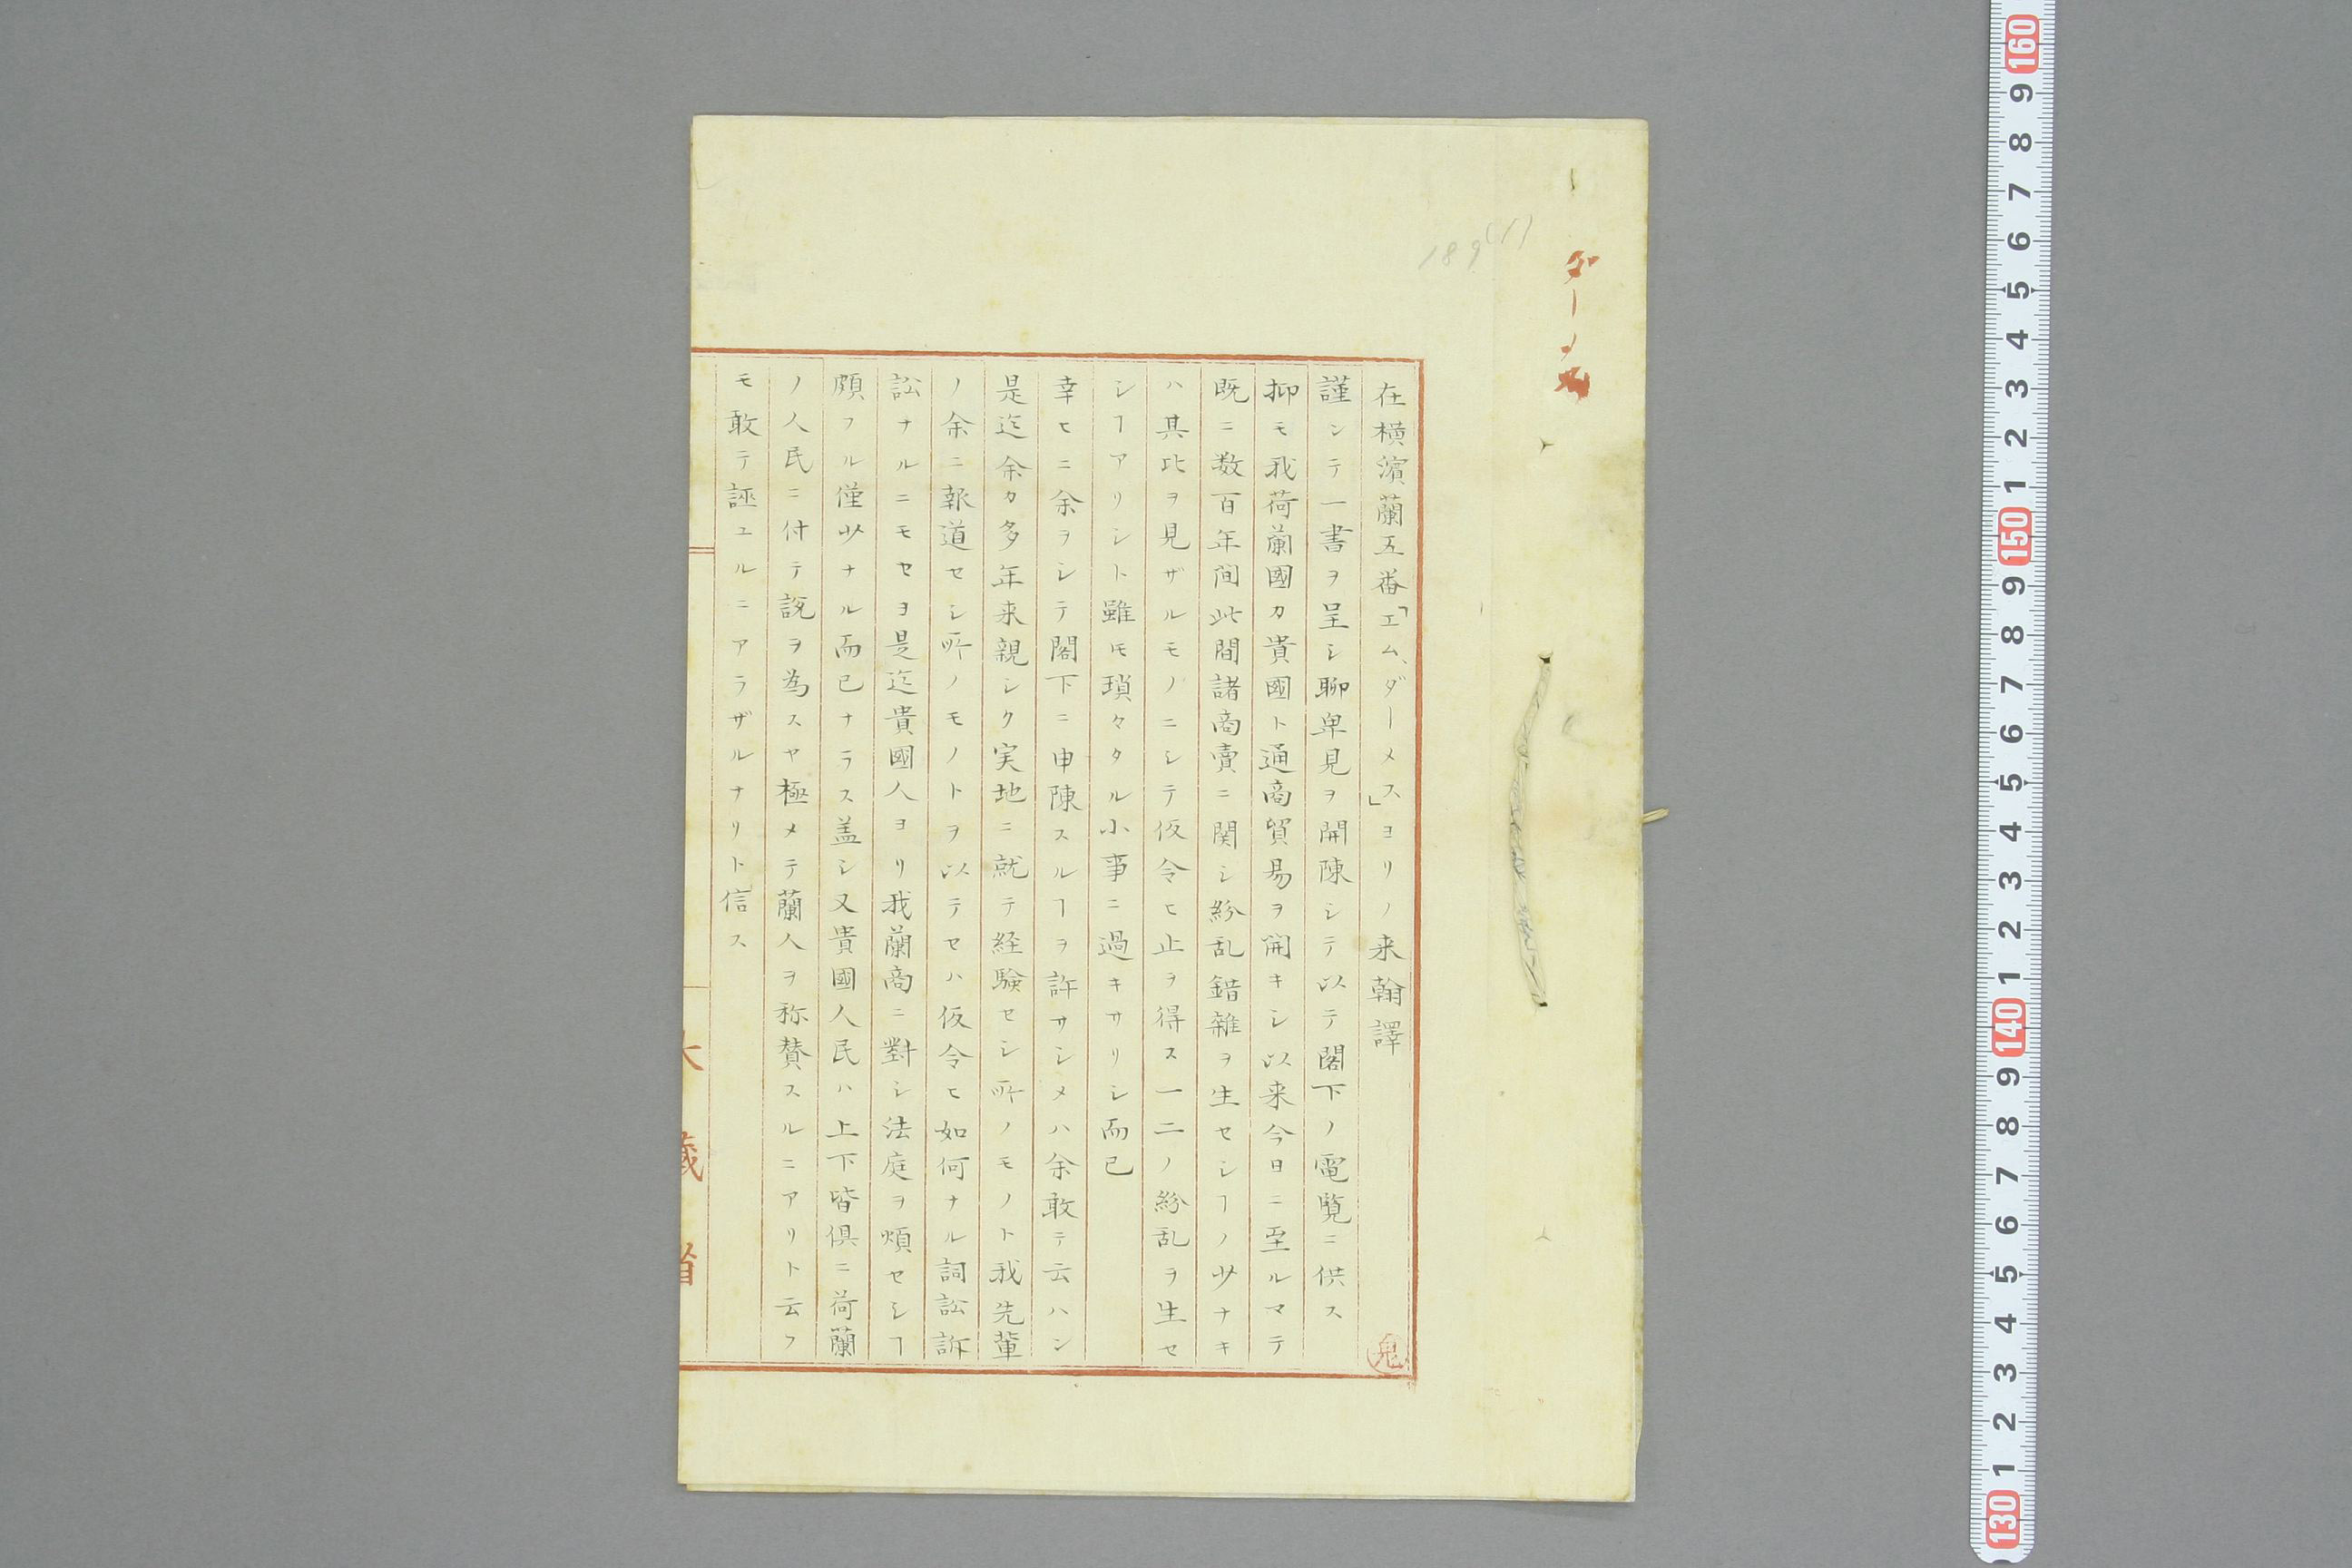 ダーメス
189(1)
在横濱蘭五番「エム、ダーメス」ヨリノ来翰譯
謹ンテ一書ヲ呈シ聊卑見ヲ開陳シテ以テ閣下ノ電覧ニ供ス
抑モ我荷蘭國カ貴國ト通商貿易ヲ開キシ以来今日ニ至ルマテ
既ニ数百年間此間諸商賣ニ関シ紛乱錯雜ヲ生セシヿノ少ナキ
ハ其比ヲ見ザルモノニシテ仮令ヒ止ヲ得ス一二ノ紛乱ヲ生セ
シヿアリシト雖モ瑣々タル小事ニ過キサリシ而已
幸ヒニ余ヲシテ閣下ニ申陳スルヿヲ許サシメハ余敢テ云ハン
是迄余カ多年来親シク実地ニ就テ経験セシ所ノモノト我先輩
ノ余ニ報道セシ所ノモノトヲ以テセハ仮令ヒ如何ナル詞訟訴
訟ナルニモセヨ是迄貴國人ヨリ我蘭商ニ對シ法庭ヲ煩セシヿ
頗フル僅少ナル而已ナラス盖シ又貴國人民ハ上下皆倶ニ荷蘭
ノ人民ニ付テ説ヲ為スヤ極メテ蘭人ヲ称賛スルニアリト云フ
モ敢テ誣ユルニアラザルナリト信ス
大藏省